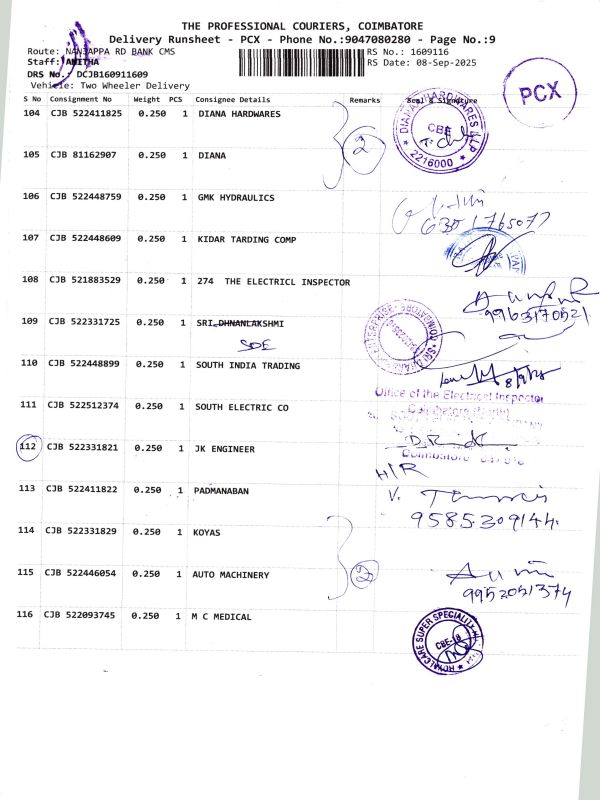 THE PROFESSIONAL COURIERS, COIMBATORE
Delivery Runsheet - PCX - Phone No.:9047080280 - Page No.:9
Route: NANJAPPA RD BANK CMS
RS No.: 1609116
Staff: ANITHA
RS Date: 08-Sep-2025
DRS No.: DCJB160911609
Vehicle: Two Wheeler Delivery
PCX
S No Consignment No Weight PCS Consignee Details Remarks Seal & Signature
104 CJB 522411825 0.250 1 DIANA HARDWARES
DIANA HARDWARES LLP
CBE
2216000
2
105 CJB 81162907 0.250 1 DIANA
106 CJB 522448759 0.250 1 GMK HYDRAULICS
107 CJB 522448609 0.250 1 KIDAR TARDING COMP
108 CJB 521883529 0.250 1 274 THE ELECTRICL INSPECTOR
109 CJB 522331725 0.250 1 SRI DHNANLAKSHMI
SDE
110 CJB 522448899 0.250 1 SOUTH INDIA TRADING
8/9/25
Office of the Electrical Inspector
111 CJB 522512374 0.250 1 SOUTH ELECTRIC CO
112 CJB 522331821 0.250 1 JK ENGINEER
H/R
113 CJB 522411822 0.250 1 PADMANABAN
9585309144
114 CJB 522331829 0.250 1 KOYAS
2
115 CJB 522446054 0.250 1 AUTO MACHINERY
9952051374
116 CJB 522093745 0.250 1 M C MEDICAL
ROYALCARE SUPER SPECIALITY
CBE-18